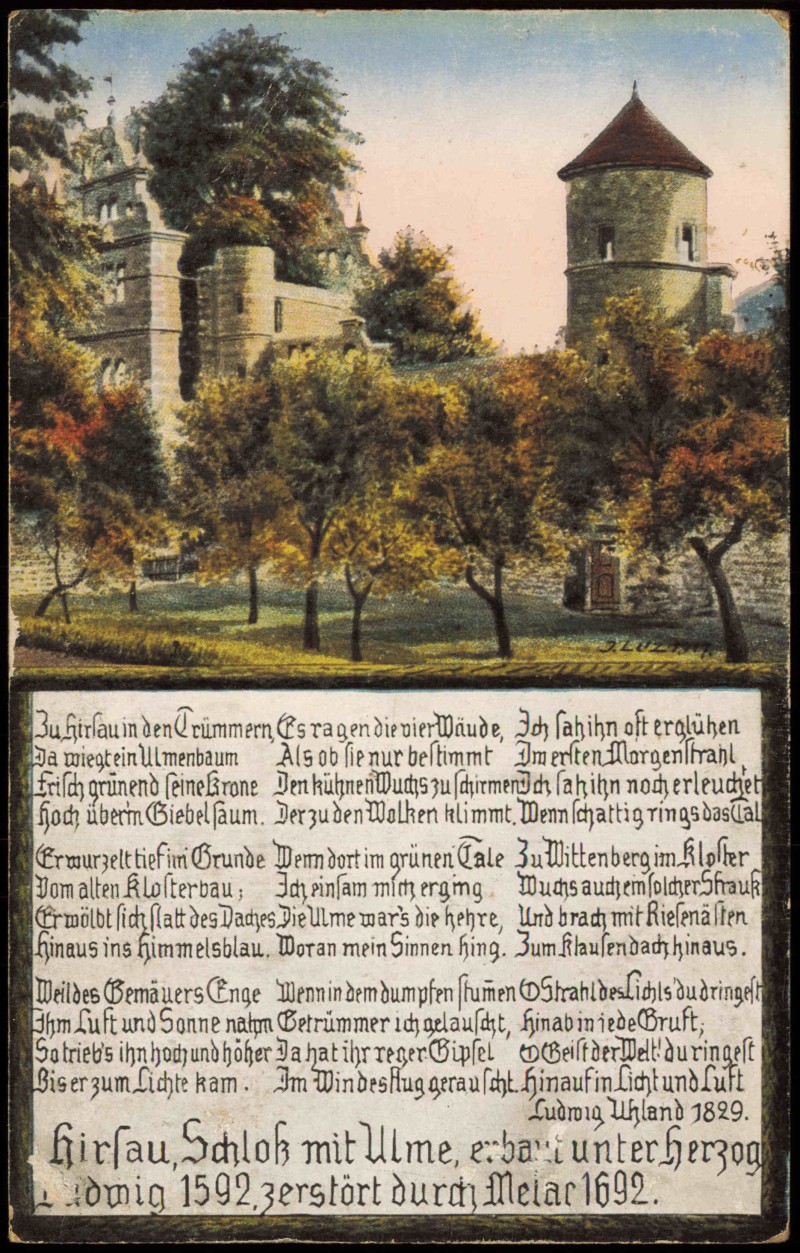 Zu Hirsau in den Trümmern,
Da wiegt ein Ulmenbaum
Frisch grünend seine Krone
Hoch überm Giebelsaum.
Er wurzelt tief im Grunde
Vom alten Klosterbau;
Er wölbt sich statt des Daches
Hinaus ins Himmelsblau.
Weil des Gemäuers Enge
Ihm Luft und Sonne nahm
So trieb's ihn hoch und höher
Bis er zum Lichte kam.
Es ragen die vier Wände,
Als ob sie nur bestimmt
Den kühnen Wuchs zu schirmen
Der zu den Wolken klimmt.
Wenn dort im grünen Tale
Ich einsam mich erging
Die Ulme war's die hehre,
Woran mein Sinnen hing.
Wenn in dem dumpfen stum̄en
Getrümmer ich gelauscht,
Da hat ihr reger Gipfel
Im Windesflug gerauscht.
Ich sah ihn oft erglühen
Im ersten Morgenstrahl,
Ich sah ihn noch erleuchtet
Wenn schattig rings das Tal
Zu Wittenberg im Kloster
Wuchs auch ein solcher Strauß
Und brach mit Riesenästen
Zum Klausendach hinaus.
O Strahl des Lichts! du dringest
Hinab in jede Gruft;
O Geist der Welt! du ringest
Hinauf in Licht und Luft
Ludwig Uhland 1829.
Hirsau, Schloß mit Ulme, erbaut unter Herzog
Ludwig 1592, zerstört durch Melac 1692.